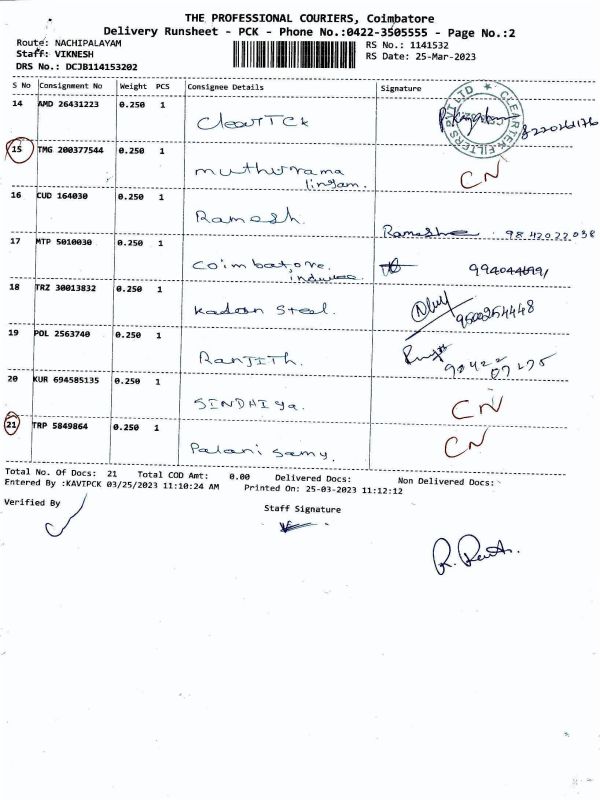 THE PROFESSIONAL COURIERS, Coimbatore
Delivery Runsheet - PCK - Phone No.:0422-3505555 - Page No.:2
Route: NACHIPALAYAM
Staff: VIKNESH
DRS No.: DCJB114153202
RS No.: 1141532
RS Date: 25-Mar-2023
S No Consignment No Weight PCS Consignee Details Signature
14 AMD 26431223 0.250 1 ClearTCk
CLEARTEK FILTERS PVT LTD
15 TMG 200377544 0.250 1 muthurama CN
lingam.
16 CUD 164030 0.250 1 Ramesh.
9842022038
17 MTP 5010030 0.250 1 Coimbatore.
18 TRZ 30013832 0.250 1 Kadern Steel. 9500254448
19 POL 2563740 0.250 1 RanJiTh.
20 KUR 694585135 0.250 1 SINDHIya. CN
21 TRP 5849864 0.250 1 Palani Samy. CN
Total No. Of Docs: 21 Total COD Amt: 0.00 Delivered Docs: Non Delivered Docs:
Entered By :KAVIPCK 03/25/2023 11:10:24 AM Printed On: 25-03-2023 11:12:12
Verified By Staff Signature